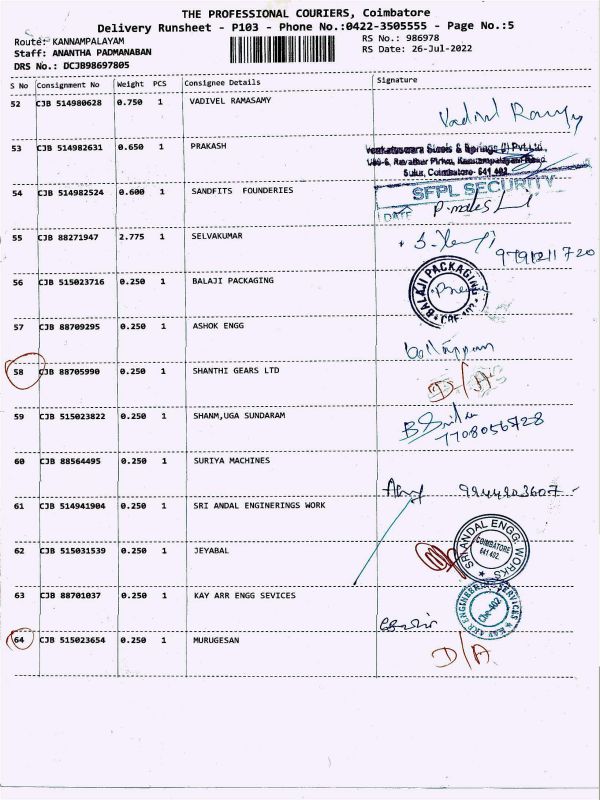 THE PROFESSIONAL COURIERS, Coimbatore
Delivery Runsheet - P103 - Phone No.:0422-3505555 - Page No.:5
Route: KANNAMPALAYAM
RS No.: 986978
Staff: ANANTHA PADMANABAN
RS Date: 26-Jul-2022
DRS No.: DCJB98697805
S No Consignment No Weight PCS Consignee Details Signature
52 CJB 514980628 0.750 1 VADIVEL RAMASAMY
Vadivel
53 CJB 514982631 0.650 1 PRAKASH
Venkateswara Steels & Springs (I) Pvt.Ltd.,
Sulur, Coimbatore- 641 402.
54 CJB 514982524 0.600 1 SANDFITS FOUNDERIES
SFPL SECURITY
DATE
55 CJB 88271947 2.775 1 SELVAKUMAR
9791211720
56 CJB 515023716 0.250 1 BALAJI PACKAGING
BALAJI PACKAGING
57 CJB 88709295 0.250 1 ASHOK ENGG
58 CJB 88705990 0.250 1 SHANTHI GEARS LTD
D/A
59 CJB 515023822 0.250 1 SHANM,UGA SUNDARAM
7708056728
60 CJB 88564495 0.250 1 SURIYA MACHINES
9944903607
61 CJB 514941904 0.250 1 SRI ANDAL ENGINERINGS WORK
SRI ANDAL ENGG. WORKS
COIMBATORE
641 402.
62 CJB 515031539 0.250 1 JEYABAL
63 CJB 88701037 0.250 1 KAY ARR ENGG SEVICES
KAY ARR ENGINEERING SERVICES
Cbe-402
64 CJB 515023654 0.250 1 MURUGESAN
D/A